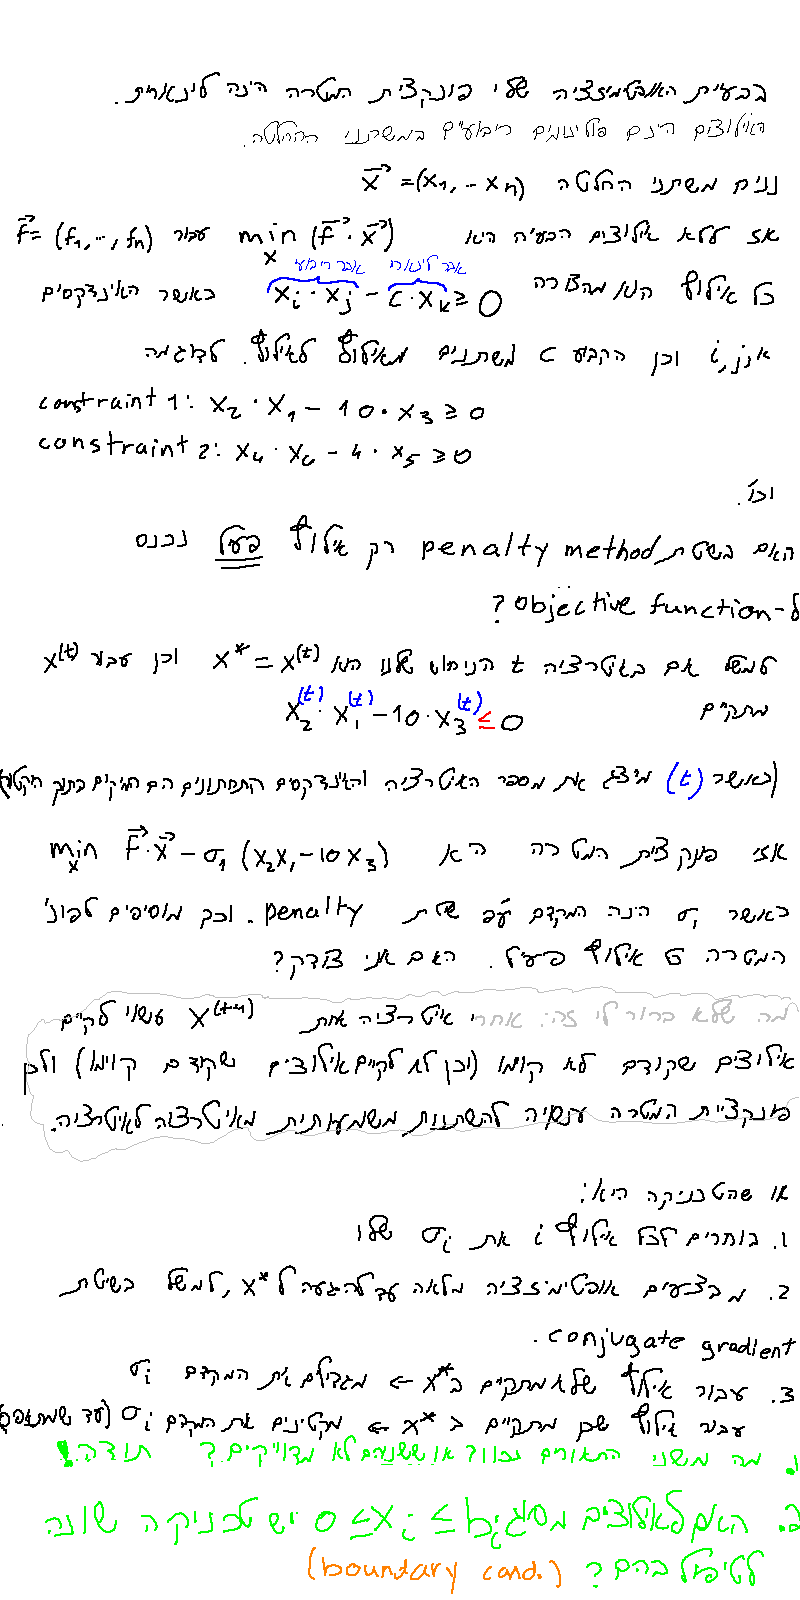 בבעיית האופטימיזציה שלי פונקצית המטרה הינה לינארית.
האילוצים הינם פולינומים ריבועיים במשתני ההחלטה.
נניח משתני החלטה x⃗ = (x₁, … xₙ)
אז ללא אילוצים הבעיה היא min_x (f⃗ · x⃗) עבור f⃗ = (f₁, …, fₙ)
איבר לינארי איבר ריבועי
כל אילוץ הוא מהצורה xᵢ · xⱼ − c · xₖ ≥ 0 כאשר האינדקסים
i,j,k וכן הקבוע c משתנים מאילוץ לאילוץ. לדוגמה
constraint 1: x₂ · x₁ − 10 · x₃ ≥ 0
constraint 2: x₄ · x₆ − 4 · x₅ ≥ 0
וכו'.
האם בשיטת penalty method רק אילוץ פעיל נכנס
ל-objective function?
למשל אם באיטרציה t הניחוש שלנו הוא x* = x⁽ᵗ⁾ וכן עבור x⁽ᵗ⁾
מתקיים x₂⁽ᵗ⁾ · x₁⁽ᵗ⁾ − 10 · x₃⁽ᵗ⁾ ≤ 0
(כאשר (t) מייצג את מספר האיטרציה והאינדקסים התחתונים הם המיקום בתוך הקטור)
אזי פונקצית המטרה היא min_x f⃗ · x⃗ − σ₁ (x₂x₁ − 10x₃)
כאשר σ₁ הינה המקדם ע"פ שיטת penalty. וכך מוסיפים לפונ'
המטרה כל אילוץ פעיל. האם אני צודק?
מה שלא ברור לי זה: אחרי איטרציה אחת x⁽ᵗ⁺¹⁾ עשוי לקיים
אילוצים שקודם לא קוימו (וכן לא לקיים אילוצים שקודם קוימו) ולכן
פונקציית המטרה עשויה להשתנות משמעותית מאיטרציה לאיטרציה.
או שהטכניקה היא:
1. בוחרים לכל אילוץ i את σᵢ שלו
2. מבצעים אופטימיזציה מלאה עד להגעה ל x*, למשל בשיטת
conjugate gradient.
3. עבור אילוץ שלא מתקיים ב x* ← מגדילים את המקדם σᵢ
עבור אילוץ שכן מתקיים ב x* ← מקטינים את המקדם σᵢ (עד שמתאפס)
1. מה משני התאורים נכון? או ששניהם לא מדוייקים? תודה!
2. האם לאילוצים מסוג 0 ≤ xᵢ ≤ bᵢ יש טכניקה שונה
לטיפול בהם? (boundary cond.)